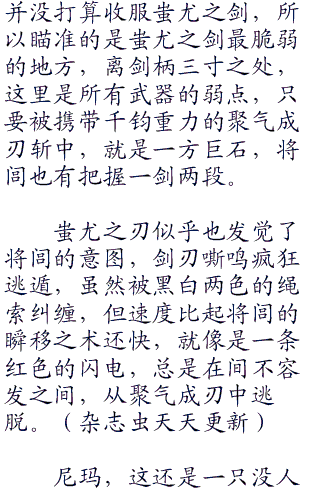 并没打算收服蚩尤之剑，所
以瞄准的是蚩尤之剑最脆弱
的地方，离剑柄三寸之处，
这里是所有武器的弱点，只
要被携带千钧重力的聚气成
刃斩中，就是一方巨石，将
闾也有把握一剑两段。
蚩尤之刃似乎也发觉了
将闾的意图，剑刃嘶鸣疯狂
逃遁，虽然被黑白两色的绳
索纠缠，但速度比起将闾的
瞬移之术还快，就像是一条
红色的闪电，总是在间不容
发之间，从聚气成刃中逃
脱。（杂志虫天天更新）
尼玛，这还是一只没人